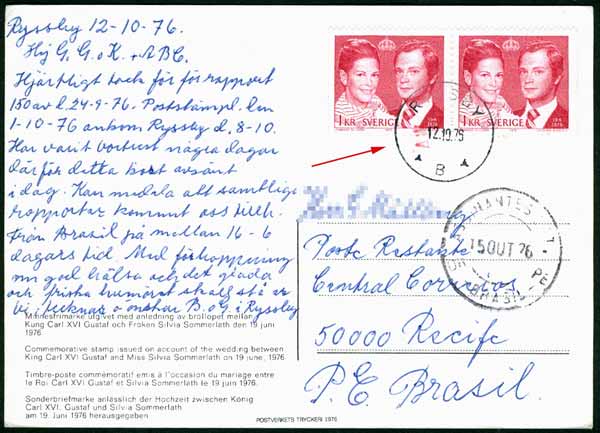 Ryssby 12-10-76.
Hej G. G. o K. + ABC.
Hjärtligt tack för för rapport
150 av d. 24-9-76. Poststämpl. den
1-10-76 ankom Ryssby d. 8-10.
Har varit bortrest några dagar
därför detta kort avsänt
i dag. Kan meddla att samtliga
rapporter kommit oss tillh.
Från Brasil på mellan 16-6
dagars tid. Med förhoppning
om god hälsa och det glada
och friska humöret skall stå er
bi, tecknar o önskar B. o G. i Ryssby
Minnesfrimärke utgivet med anledning av bröllopet mellan
Kung Carl XVI Gustaf och Fröken Silvia Sommerlath den 19 juni
1976
Commemorative stamp issued on account of the wedding between
King Carl XVI Gustaf and Miss Silvia Sommerlath on 19 june, 1976
Timbre-poste commémoratif émis à l'occasion du mariage entre
le Roi Carl XVI Gustaf et Silvia Sommerlath le 19 juin 1976.
Sonderbriefmarke anlässlich der Hochzeit zwischen König
Carl XVI. Gustaf und Silvia Sommerlath
am 19. Juni 1976 herausgegeben
POSTVERKETS TRYCKERI 1976
1 KR SVERIGE 19/6 1976
1 KR SVERIGE 19/6 1976
RYSSBY
12.10.76
B
NANTES - 1
15 OUT 76
PE
BRASIL
Poste Restante
Central Correios
50000 Recife
P.E. Brasil.